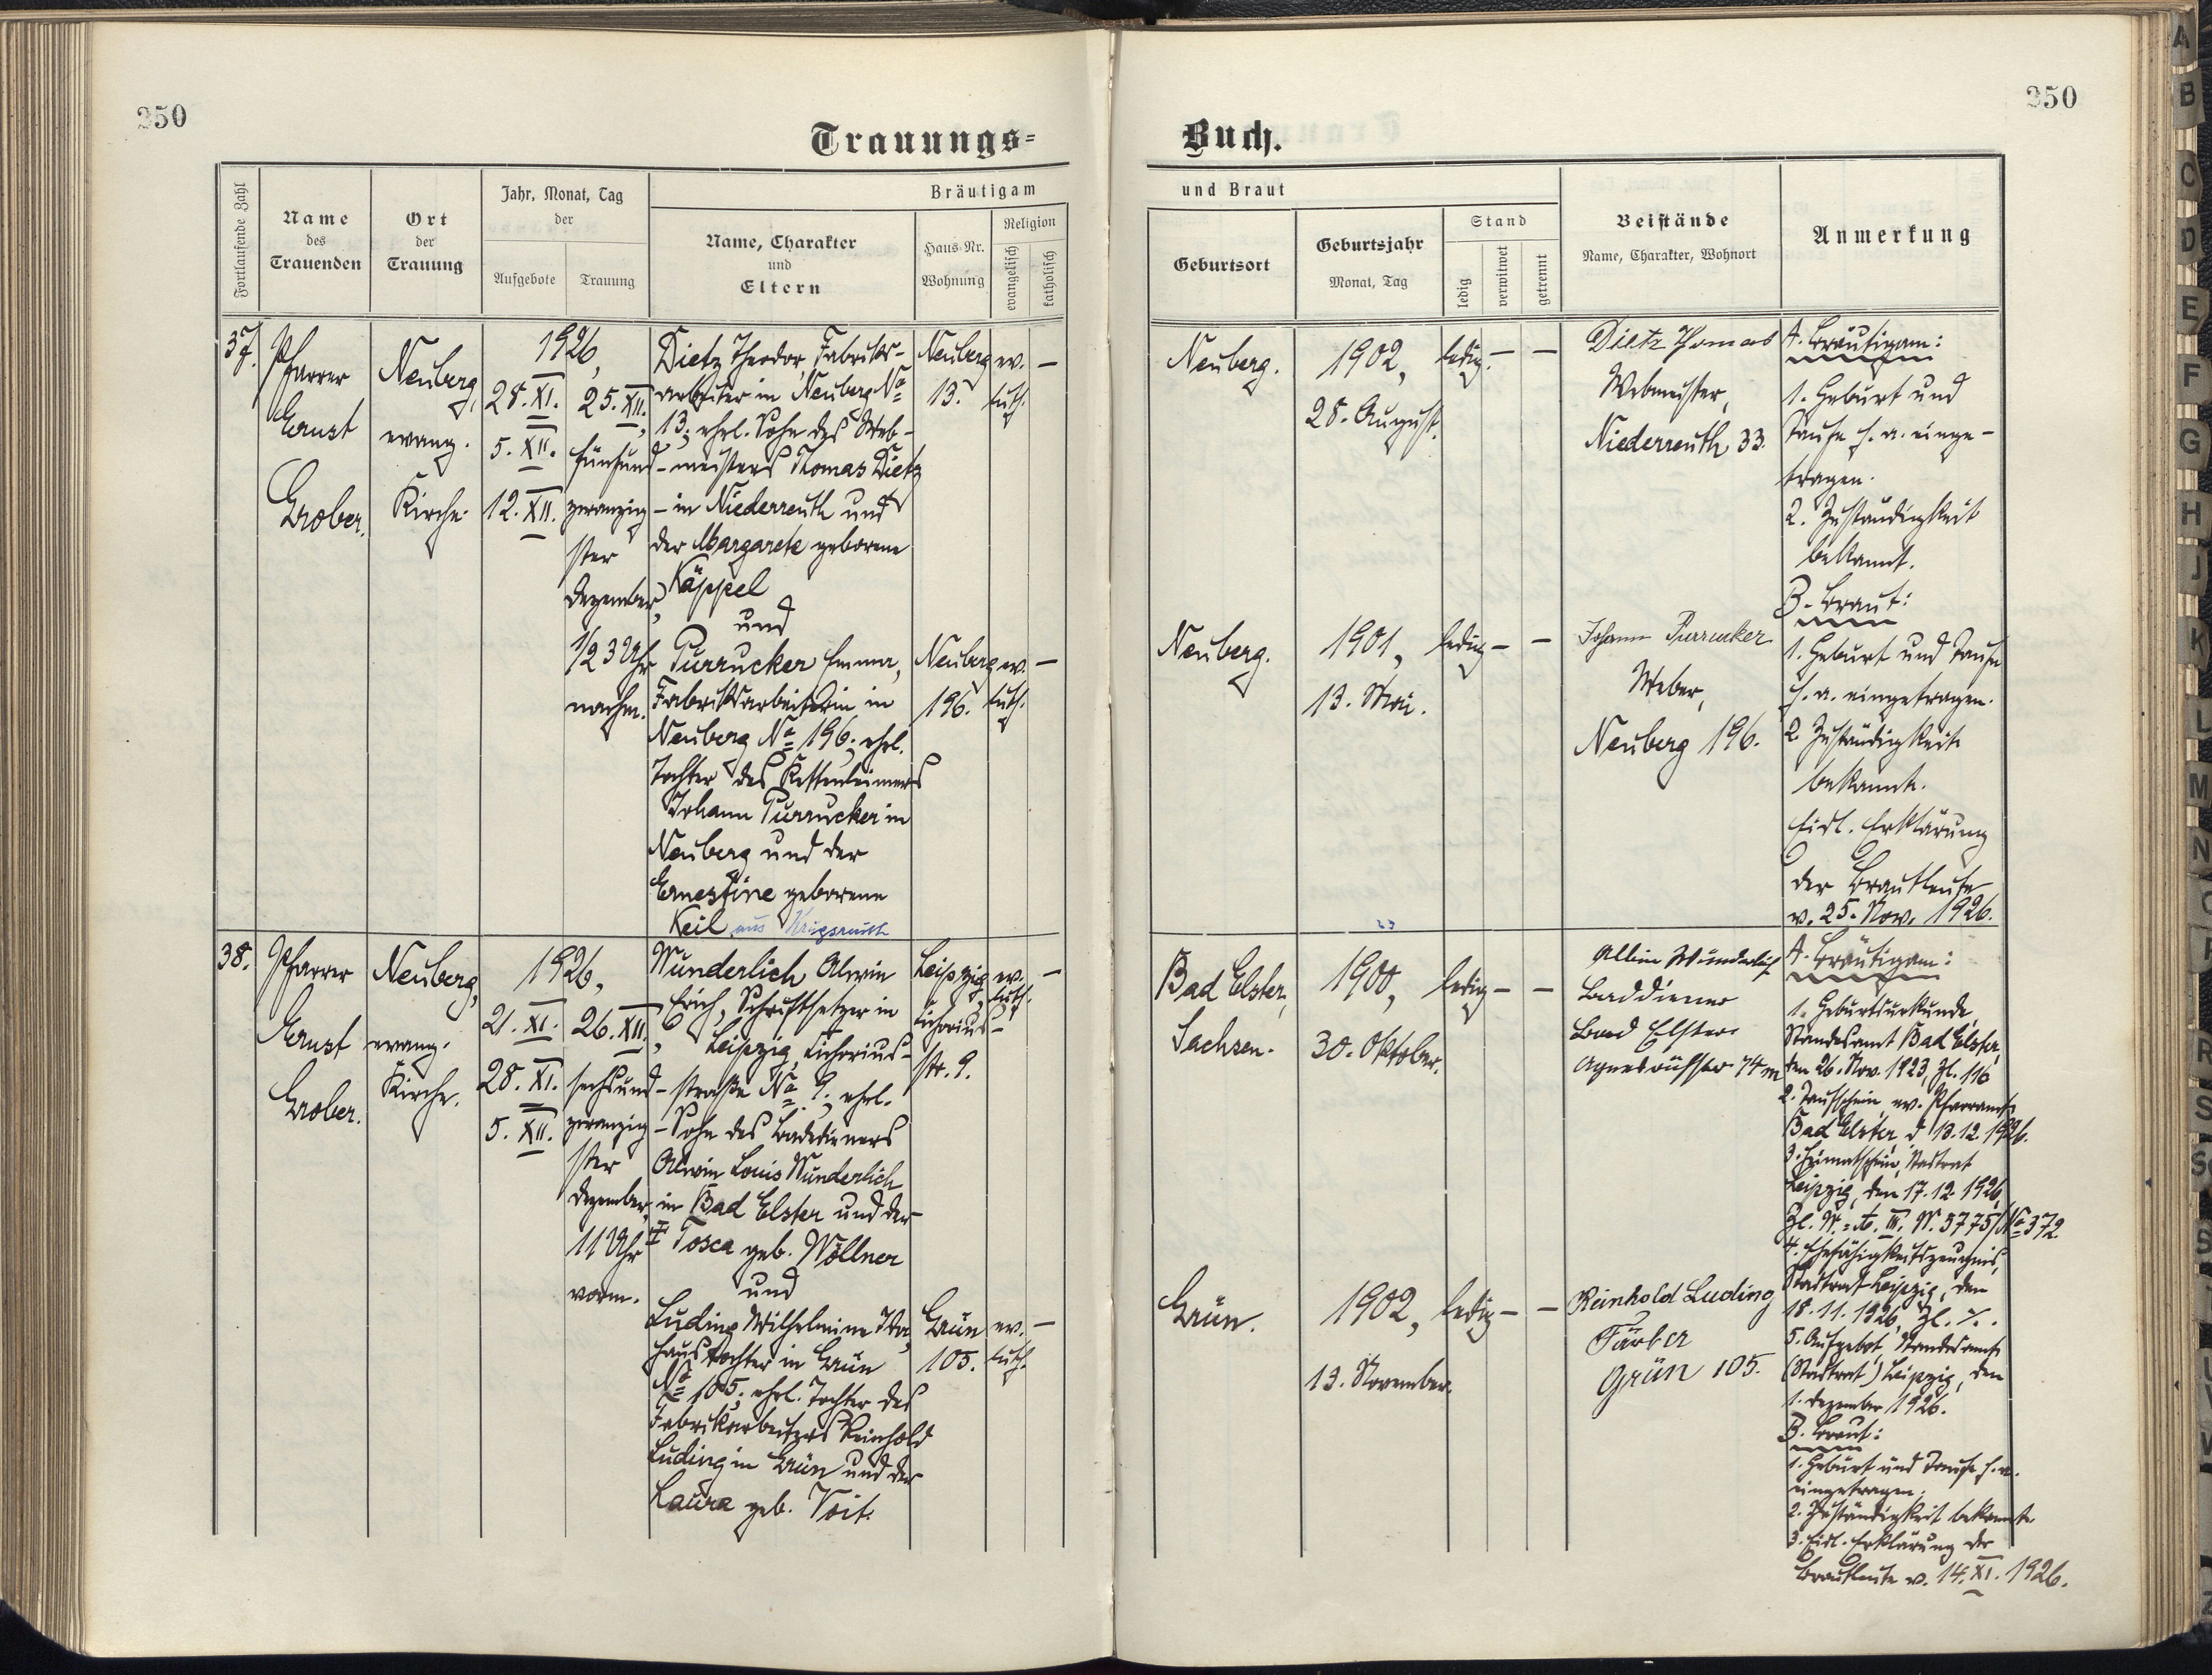 250
250
Trauungs=
Buch.
Fortlaufende Zahl
Name
des
Trauenden
Ort
der
Trauung
Jahr, Monat, Tag
der
Aufgebote
Trauung
Bräutigam
Name, Charakter
und
Eltern
Haus-Nr.
Wohnung
Religion
evangelisch
katholisch
und Braut
Geburtsort
Geburtsjahr
Monat, Tag
Stand
ledig
verwitwet
getrennt
Beistände
Name, Charakter, Wohnort
Anmerkung
37.
Pfarrer
Ernst
Grober.
Neuberg,
evang.
Kirche.
1926,
28. XI.
5. XII.
12. XII.
25. XII.,
fünfund-
zwanzig-
ster
Dezember,
1/2 3 Uhr
nachm.
Dietz Theodor, Fabriks-
arbeiter in Neuberg No
13, ehel. Sohn des Web-
meisters Thomas Dietz
in Niederreuth und
der Margarete geborene
Käppel
und
Purrucker Emma,
Fabriksarbeiterin in
Neuberg No 196, ehel.
Tochter des Kettenleimers
Johann Purrucker in
Neuberg und der
Ernestine geborene
Keil aus Krigsreuth
Neuberg
13.
ev.
luth.
—
Neuberg
196.
ev.
luth.
—
Neuberg.
1902,
28. August.
ledig. — —
Dietz Thomas
Webmeister,
Niederreuth 33.
Neuberg.
1901,
13. Mai.
ledig — —
Johann Purrucker
Weber,
Neuberg 196.
A. Bräutigam:
1. Geburt und
Taufe h. a. einge-
tragen.
2. Zuständigkeit
bekannt.
B. Braut:
1. Geburt und Taufe
h. a. eingetragen.
2. Zuständigkeit
bekannt.
Eidl. Erklärung
der Brautleute
v. 25. Nov. 1926.
38.
Pfarrer
Ernst
Grober.
Neuberg,
evang.
Kirche.
1926,
21. XI.
28. XI.
5. XII.
26. XII.,
sechsund-
zwanzig-
ster
Dezember,
11 Uhr
vorm.
Wunderlich Alwin
Erich, Schriftsetzer in
Leipzig, Lichorius-
straße No 9, ehel.
Sohn des Badedieners
Alwin Louis Wunderlich
in Bad Elster und der
Tosca geb. Wöllner
und
Luding Wilhelmine Ida,
Haustochter in Grün
No 105, ehel. Tochter des
Fabrikarbeiters Reinhold
Luding in Grün und der
Laura geb. Voit.
Leipzig
Lichorius-
str. 9.
ev.
luth.
—
Grün
105.
ev.
luth.
—
Bad Elster,
Sachsen.
1900,
30. Oktober.
ledig — —
Albin Wunderlich
Baddiener
Bad Elster
Grün.
1902,
13. November.
ledig — —
Reinhold Luding
Färber
Grün 105.
A. Bräutigam:
1. Geburtsurkunde,
Standesamt Bad Elster,
den 26. Nov. 1923, Zl. 116
2. Taufschein, ev. Pfarramt
Bad Elster, d. 13.12.1926.
3. Heimatschein, Stadtrat
Leipzig, den 17.12.1926,
4. Ehefähigkeitszeugnis,
Stadtrat Leipzig, den
18.11.1926, Zl. %.
5. Aufgebot, Standesamt
(Stadtrat) Leipzig, den
1. Dezember 1926.
B. Braut:
1. Geburt und Taufe h. a.
eingetragen.
2. Zuständigkeit bekannt.
3. Eidl. Erklärung der
Brautleute v. 14. XI. 1926.
A
B
C
D
E
F
G
H
J
K
L
M
N